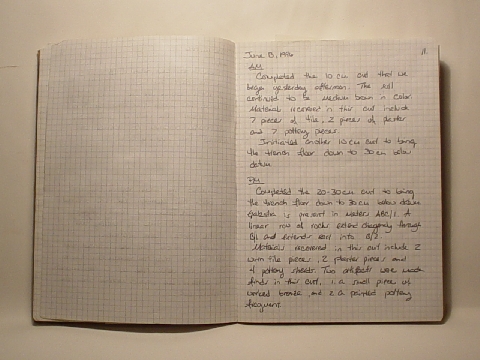 June 13, 1996
11.
AM
Completed the 10 cm cut that we
began yesterday afternoon. The soil
continued to be medium brown in color.
Materials recovered in this cut include
7 pieces of tile, 2 pieces of plaster
and 7 pottery pieces.
Initiated another 10 cm cut to bring
the trench floor down to 30 cm below
datum.
PM
Completed the 20-30 cm cut to bring
the trench floor down to 30 cm below datum
is present in meters ABC/1. A
linear row of rocks extend diagonally through
B/1 and extends east into B/2.
Materials recovered in this cut include 2
tile pieces, 2 plaster pieces and
4 pottery sherds. Two artifacts were
finds in this cut, 1. a small piece of
worked bronze, and 2. a painted pottery
fragment.